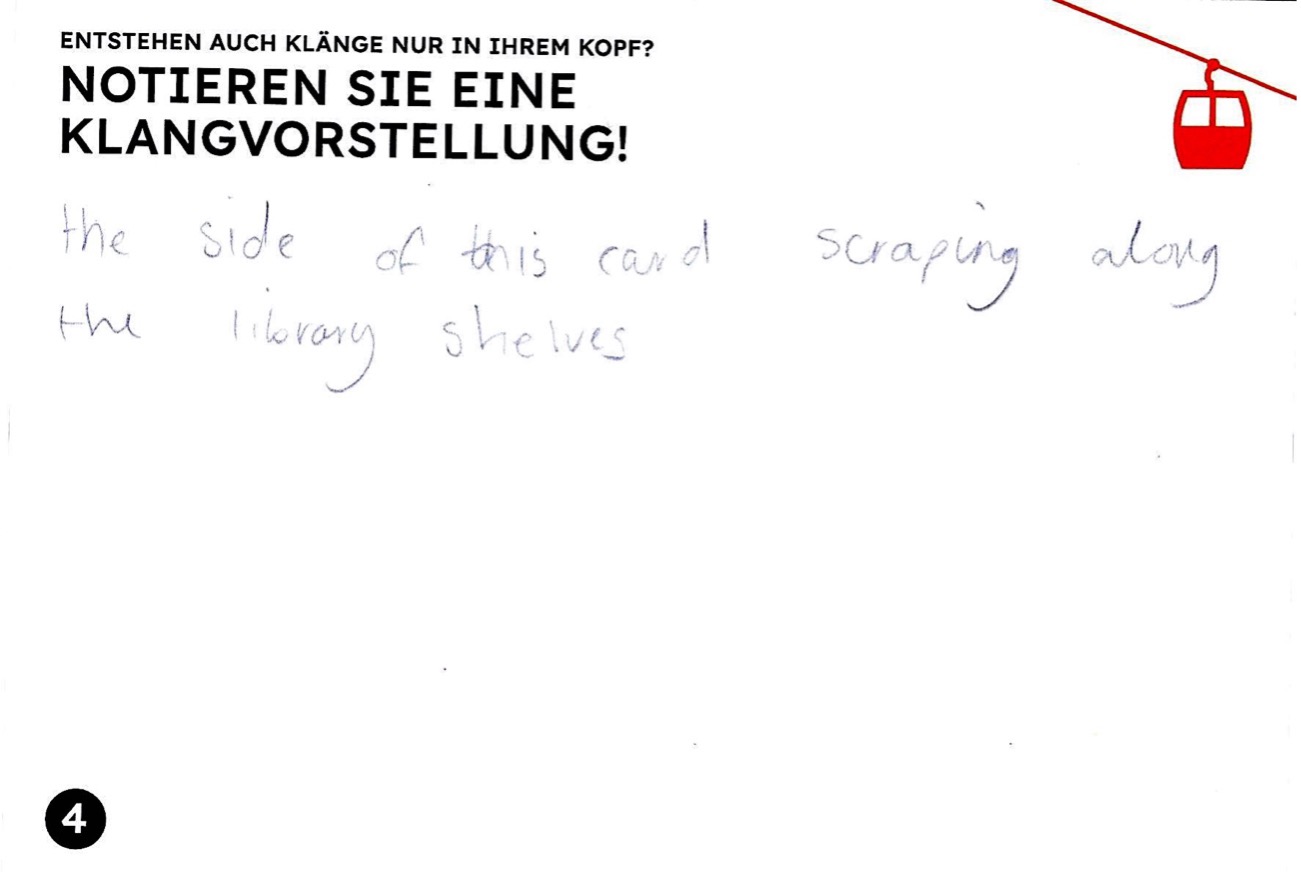 ENTSTEHEN AUCH KLÄNGE NUR IN IHREM KOPF?
NOTIEREN SIE EINE
KLANGVORSTELLUNG!
the side of this card scraping along
the library shelves
4